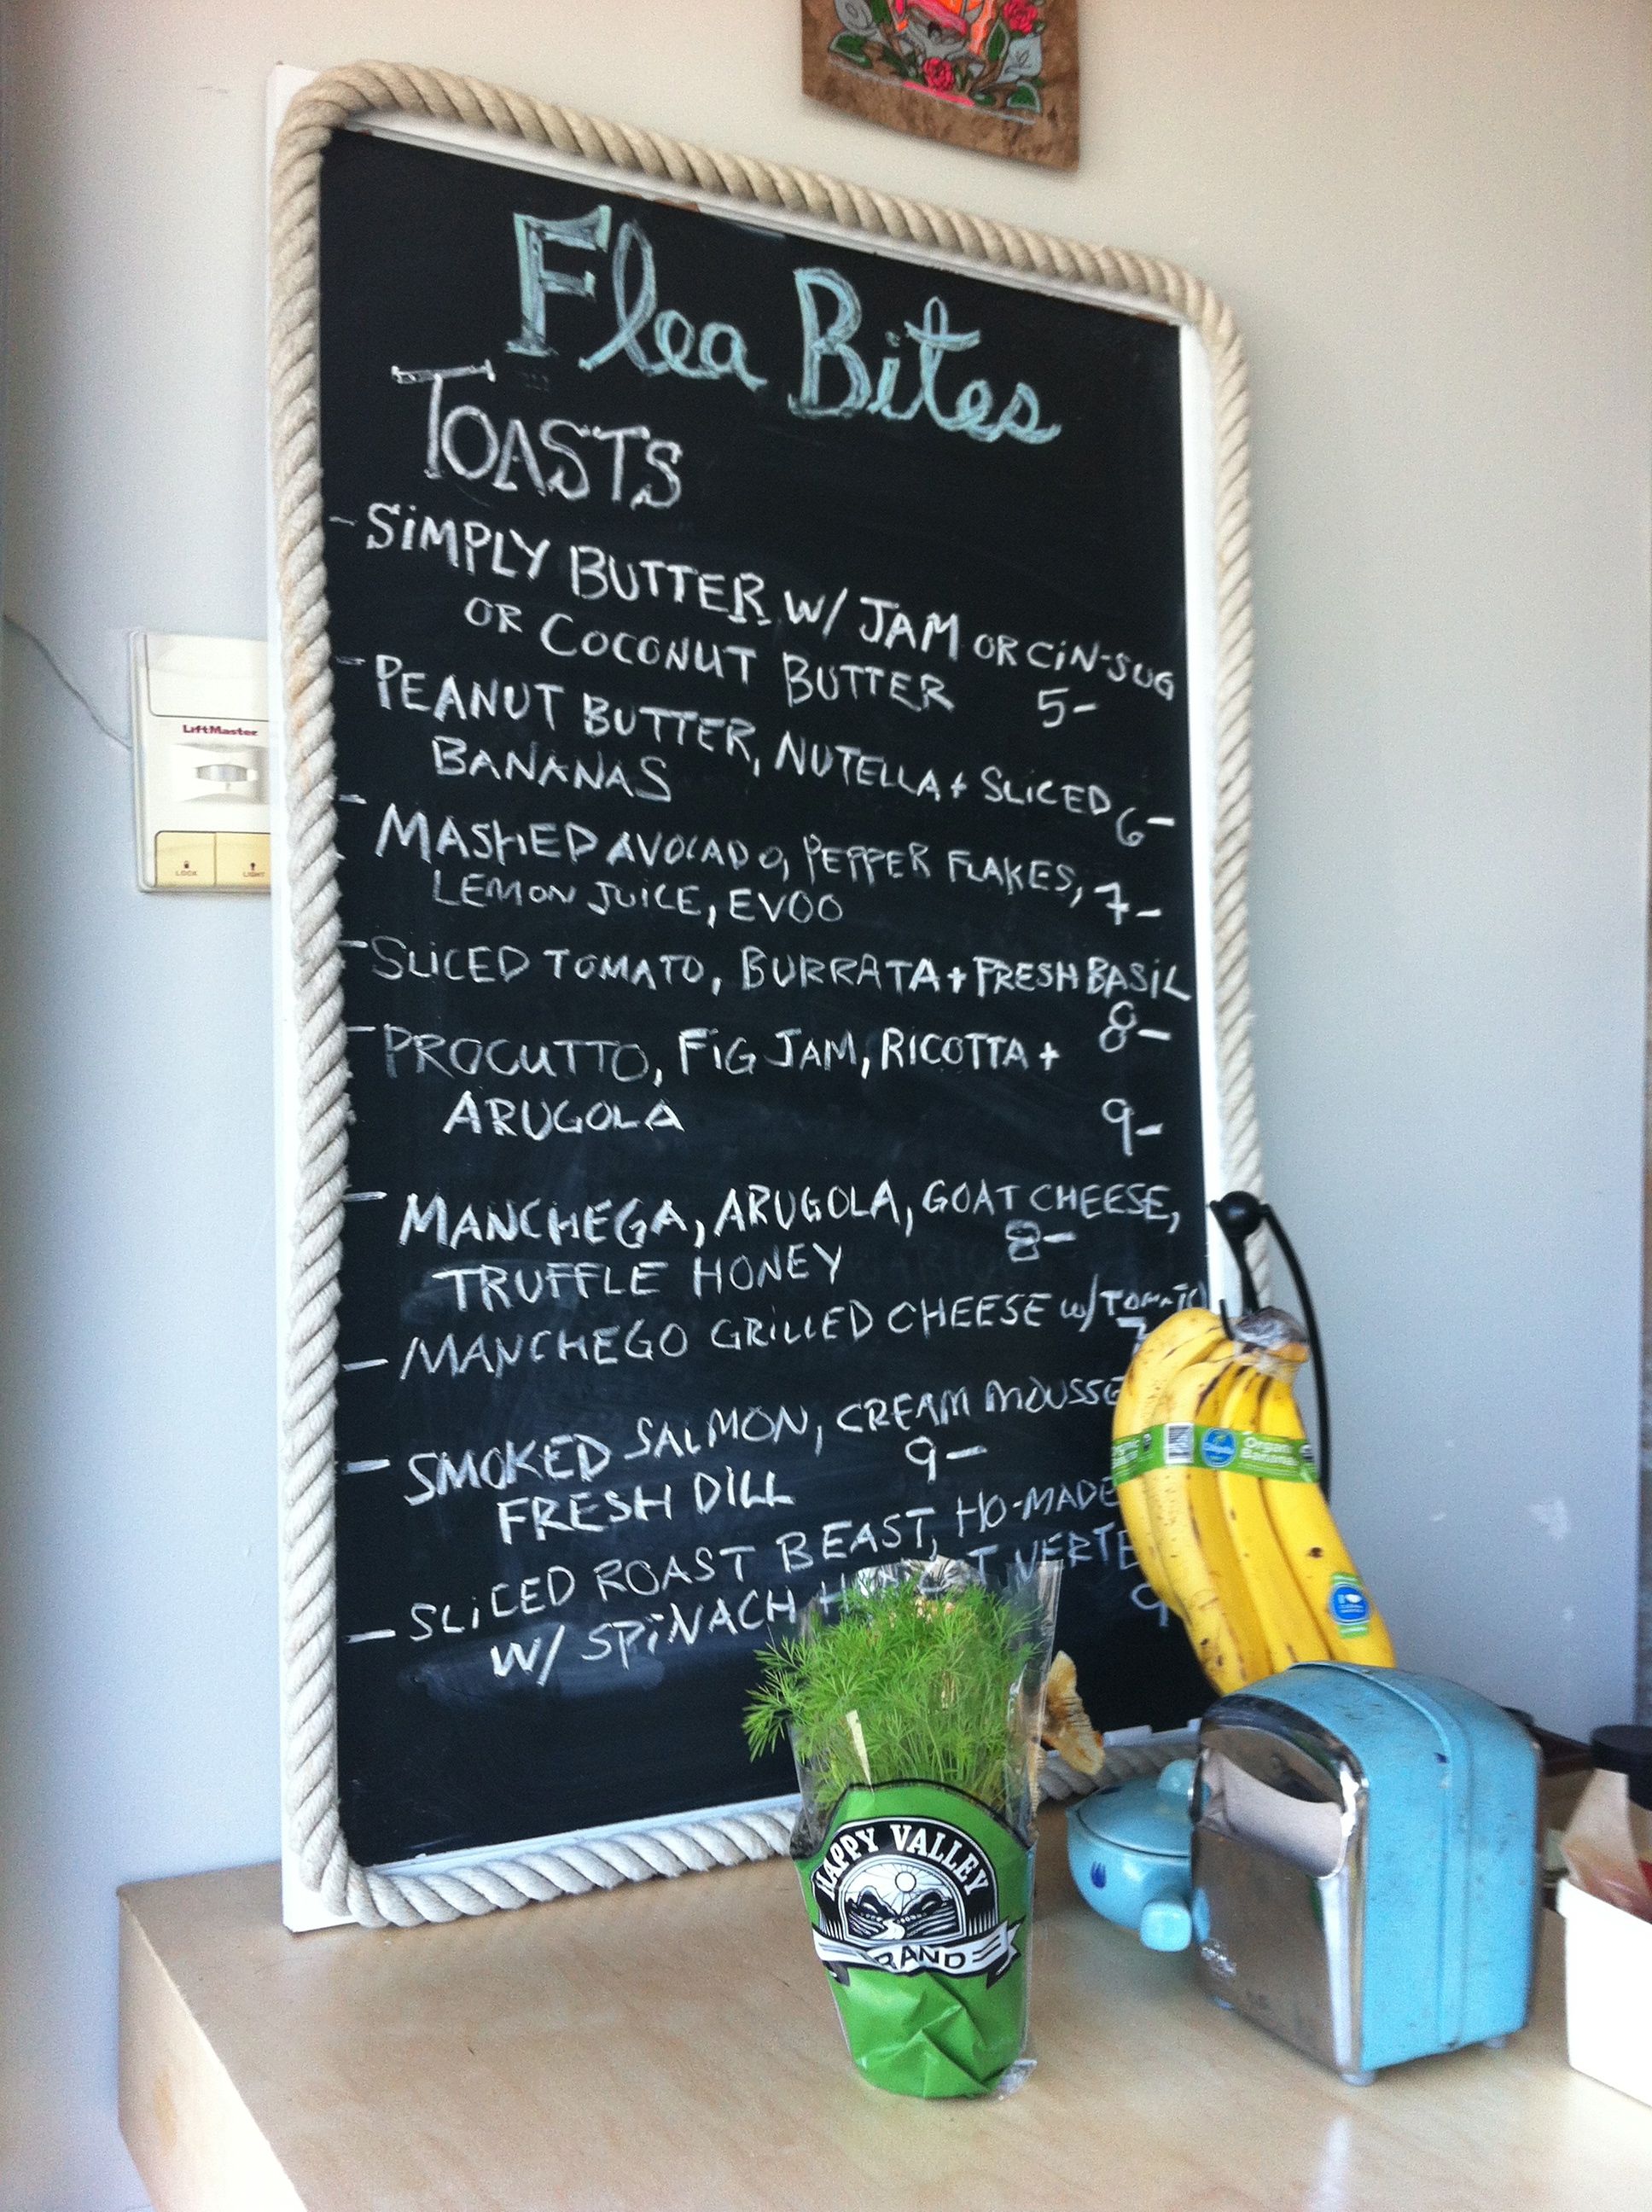 Flea Bites
TOASTS
- SiMPLY BUTTER W/ JAM OR CiN-SUG
OR COCONUT BUTTER 5-
- PEANUT BUTTER, NUTELLA + SLiCED
BANANAS 6-
- MASHED AVOCADO, PEPPER FLAKES,
LEMON JUICE, EVOO 7-
- SLICED TOMATO, BURRATA + FRESH BASiL
8-
- PROCUTTO, FiG JAM, RICOTTA +
ARUGOLA 9-
- MANCHEGA, ARUGOLA, GOAT CHEESE,
TRUFFLE HONEY 8-
- MANCHEGO GRiLLED CHEESE w/ TOMATO
7
- SMOKED SALMON, CREAM MOUSSE
FRESH DiLL 9-
- SLiCED ROAST BEAST, HO-MADE
W/ SPiNACH VERTE
9
LiftMaster
LOCK LIGHT
Organic
Bananas
HAPPY VALLEY
BRAND